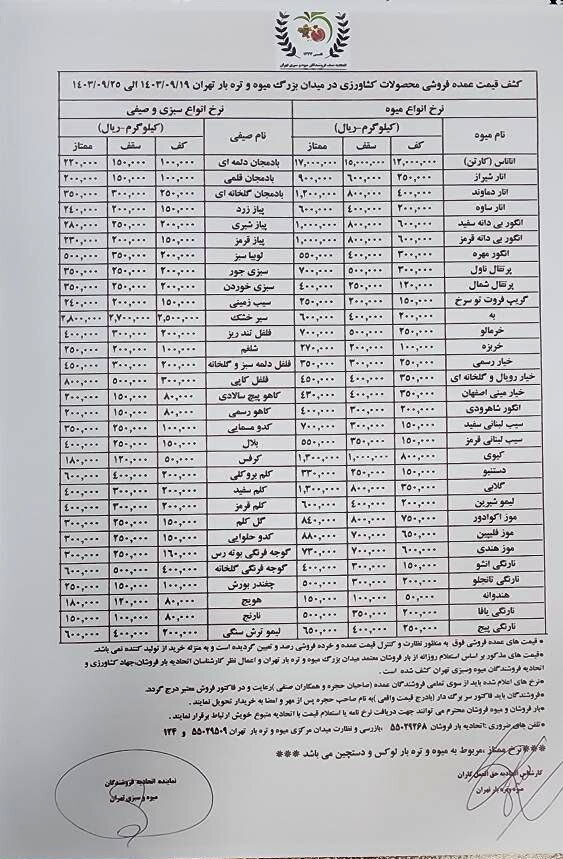 اتحادیه صنف فروشندگان میوه و سبزی تهران
کشف قیمت عمده فروشی محصولات کشاورزی در میدان بزرگ میوه و تره بار تهران ۱۴۰۳/۰۹/۱۹ الی ۱۴۰۳/۰۹/۲۵
نرخ انواع میوه نرخ انواع سبزی و صیفی
نام میوه (کیلوگرم-ریال) نام صیفی (کیلوگرم-ریال)
کف سقف ممتاز کف سقف ممتاز
اناناس (کارتن) ۱۲,۰۰۰,۰۰۰ ۱۵,۰۰۰,۰۰۰ ۱۷,۰۰۰,۰۰۰ بادمجان دلمه ای ۱۰۰,۰۰۰ ۱۵۰,۰۰۰ ۲۲۰,۰۰۰
انار شیراز ۲۵۰,۰۰۰ ۶۰۰,۰۰۰ ۹۰۰,۰۰۰ بادمجان قلمی ۱۰۰,۰۰۰ ۱۵۰,۰۰۰ ۲۰۰,۰۰۰
انار دماوند ۴۰۰,۰۰۰ ۸۰۰,۰۰۰ ۱,۲۰۰,۰۰۰ بادمجان گلخانه ای ۲۵۰,۰۰۰ ۳۰۰,۰۰۰ ۳۵۰,۰۰۰
انار ساوه ۲۰۰,۰۰۰ ۴۰۰,۰۰۰ ۶۰۰,۰۰۰ پیاز زرد ۱۵۰,۰۰۰ ۲۰۰,۰۰۰ ۲۴۰,۰۰۰
انگور بی دانه سفید ۶۰۰,۰۰۰ ۸۰۰,۰۰۰ ۱,۰۰۰,۰۰۰ پیاز شیری ۲۰۰,۰۰۰ ۲۵۰,۰۰۰ ۲۸۰,۰۰۰
انگور بی دانه قرمز ۶۰۰,۰۰۰ ۸۰۰,۰۰۰ ۱,۰۰۰,۰۰۰ پیاز قرمز ۱۵۰,۰۰۰ ۲۰۰,۰۰۰ ۲۳۰,۰۰۰
انگور مهره ۳۰۰,۰۰۰ ۴۰۰,۰۰۰ ۵۵۰,۰۰۰ لوبیا سبز ۲۰۰,۰۰۰ ۳۵۰,۰۰۰ ۵۰۰,۰۰۰
پرتقال ناول ۳۰۰,۰۰۰ ۵۰۰,۰۰۰ ۷۰۰,۰۰۰ سبزی جور ۲۰۰,۰۰۰ ۲۵۰,۰۰۰ ۳۵۰,۰۰۰
پرتقال شمال ۱۲۰,۰۰۰ ۲۵۰,۰۰۰ ۴۰۰,۰۰۰ سبزی خوردن ۲۰۰,۰۰۰ ۲۵۰,۰۰۰ ۳۵۰,۰۰۰
گریپ فروت تو سرخ ۱۵۰,۰۰۰ ۲۰۰,۰۰۰ ۲۵۰,۰۰۰ سیب زمینی ۱۵۰,۰۰۰ ۲۰۰,۰۰۰ ۲۴۰,۰۰۰
به ۲۰۰,۰۰۰ ۴۰۰,۰۰۰ ۶۰۰,۰۰۰ سیر خشک ۲,۵۰۰,۰۰۰ ۲,۷۰۰,۰۰۰ ۲,۸۰۰,۰۰۰
خرمالو ۲۵۰,۰۰۰ ۵۰۰,۰۰۰ ۷۰۰,۰۰۰ فلفل تند ریز ۲۰۰,۰۰۰ ۳۰۰,۰۰۰ ۴۰۰,۰۰۰
خربزه ۱۰۰,۰۰۰ ۲۰۰,۰۰۰ ۲۷۰,۰۰۰ شلغم ۱۰۰,۰۰۰ ۲۰۰,۰۰۰ ۲۵۰,۰۰۰
خیار رسمی ۲۵۰,۰۰۰ ۳۰۰,۰۰۰ ۳۵۰,۰۰۰ فلفل دلمه سبز و گلخانه ۲۰۰,۰۰۰ ۳۰۰,۰۰۰ ۴۵۰,۰۰۰
خیار رویال و گلخانه ای ۳۵۰,۰۰۰ ۴۰۰,۰۰۰ ۴۵۰,۰۰۰ فلفل کاپی ۳۰۰,۰۰۰ ۵۰۰,۰۰۰ ۸۰۰,۰۰۰
خیار مینی اصفهان ۳۵۰,۰۰۰ ۴۰۰,۰۰۰ ۴۳۰,۰۰۰ کاهو پیچ سالادی ۸۰,۰۰۰ ۱۵۰,۰۰۰ ۲۰۰,۰۰۰
انگور شاهرودی ۲۰۰,۰۰۰ ۳۰۰,۰۰۰ ۴۰۰,۰۰۰ کاهو رسمی ۸۰,۰۰۰ ۱۵۰,۰۰۰ ۲۰۰,۰۰۰
سیب لبنانی سفید ۱۵۰,۰۰۰ ۳۰۰,۰۰۰ ۷۰۰,۰۰۰ کدو مسمایی ۱۰۰,۰۰۰ ۲۵۰,۰۰۰ ۳۵۰,۰۰۰
سیب لبنانی قرمز ۱۵۰,۰۰۰ ۳۵۰,۰۰۰ ۵۵۰,۰۰۰ بلال ۱۵۰,۰۰۰ ۲۵۰,۰۰۰ ۴۰۰,۰۰۰
کیوی ۸۰۰,۰۰۰ ۱,۰۰۰,۰۰۰ ۱,۳۰۰,۰۰۰ کرفس ۵۰,۰۰۰ ۱۲۰,۰۰۰ ۱۸۰,۰۰۰
دستنبو ۱۵۰,۰۰۰ ۲۵۰,۰۰۰ ۳۳۰,۰۰۰ کلم بروکلی ۲۰۰,۰۰۰ ۴۰۰,۰۰۰ ۶۰۰,۰۰۰
گلابی ۳۵۰,۰۰۰ ۸۰۰,۰۰۰ ۱,۳۰۰,۰۰۰ کلم سفید ۲۰۰,۰۰۰ ۳۰۰,۰۰۰ ۴۰۰,۰۰۰
لیمو شیرین ۲۰۰,۰۰۰ ۴۰۰,۰۰۰ ۶۰۰,۰۰۰ کلم قرمز ۲۰۰,۰۰۰ ۳۰۰,۰۰۰ ۴۰۰,۰۰۰
موز اکوادور ۷۵۰,۰۰۰ ۸۰۰,۰۰۰ ۸۴۰,۰۰۰ گل کلم ۱۵۰,۰۰۰ ۲۵۰,۰۰۰ ۳۰۰,۰۰۰
موز فلیپین ۶۵۰,۰۰۰ ۷۰۰,۰۰۰ ۸۸۰,۰۰۰ کدو حلوایی ۱۵۰,۰۰۰ ۲۵۰,۰۰۰ ۳۰۰,۰۰۰
موز هندی ۶۰۰,۰۰۰ ۷۰۰,۰۰۰ ۷۳۰,۰۰۰ گوجه فرنگی بوته رس ۱۶۰,۰۰۰ ۲۵۰,۰۰۰ ۳۰۰,۰۰۰
نارنگی انشو ۱۵۰,۰۰۰ ۳۰۰,۰۰۰ ۴۰۰,۰۰۰ گوجه فرنگی گلخانه ۴۰۰,۰۰۰ ۵۰۰,۰۰۰ ۶۰۰,۰۰۰
نارنگی تانجلو ۲۰۰,۰۰۰ ۳۰۰,۰۰۰ ۵۰۰,۰۰۰ چغندر بورش ۱۰۰,۰۰۰ ۱۵۰,۰۰۰ ۲۵۰,۰۰۰
هندوانه ۵۰,۰۰۰ ۱۰۰,۰۰۰ ۱۵۰,۰۰۰ هویج ۸۰,۰۰۰ ۱۲۰,۰۰۰ ۱۸۰,۰۰۰
نارنگی یافا ۲۰۰,۰۰۰ ۳۵۰,۰۰۰ ۵۰۰,۰۰۰ نارنج ۸۰,۰۰۰ ۱۰۰,۰۰۰ ۱۵۰,۰۰۰
نارنگی پیج ۲۵۰,۰۰۰ ۴۰۰,۰۰۰ ۶۵۰,۰۰۰ لیمو ترش سنگی ۲۰۰,۰۰۰ ۴۰۰,۰۰۰ ۶۰۰,۰۰۰
*قیمت های عمده فروشی فوق به منظور نظارت و کنترل قیمت عمده و خرده فروشی رصد و تعیین گردیده است و به منزله خرید از تولید کننده نمی باشد.
*قیمت های مذکور بر اساس استعلام روزانه از بار فروشان معتمد میدان بزرگ میوه و تره بار تهران و اعمال نظر کارشناسان اتحادیه بار فروشان،جهاد کشاورزی و
اتحادیه فروشندگان میوه وسبزی تهران کشف شده است .
*نرخ های اعلام شده باید از سوی تمامی فروشندگان عمده (صاحبان حجره و همکاران صنفی )رعایت و در فاکتور فروش معتبر درج گردد.
*فروشندگان باید فاکتور سر برگ دار (بادرج قیمت واقعی )به نام صاحب حجره پس از مهر و امضا به خریدار تحویل نمایند .
*بار فروشان و میوه فروشان محترم می توانند جهت دریافت نرخ نامه یا استعلام قیمت با اتحادیه متبوع خویش ارتباط برقرار نمایند .
*تلفن های ضروری :اتحادیه بار فروشان ۵۵۰۲۹۲۶۸ ،بازرسی و نظارت میدان مرکزی میوه و تره بار تهران ۵۵۰۲۹۵۰۹ و ۱۲۴
***نرخ ممتاز ،مربوط به میوه و تره بار لوکس و دستچین می باشد ***
کارشناس اتحادیه حق العمل کاران
میوه و تره بار تهران
نماینده اتحادیه فروشندگان
میوه و سبزی تهران